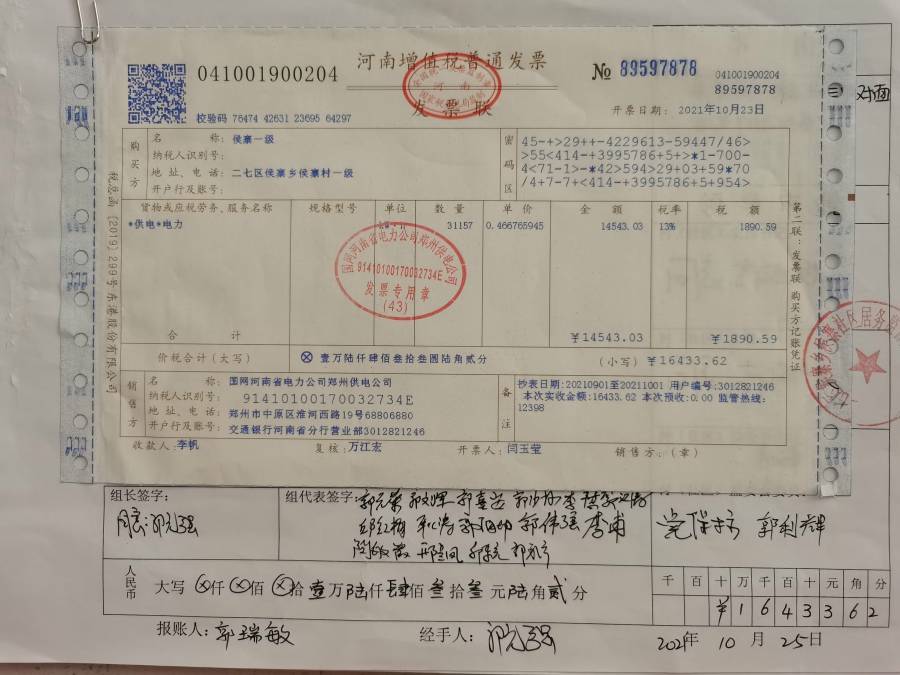 河南增值税普通发票
041001900204
№ 89597878
041001900204
89597878
发票联
校验码 76474 42631 23695 64297
开票日期： 2021年10月23日
对面
购买方
名 称： 侯寨一级
纳税人识别号：
地 址、电 话： 二七区侯寨乡侯寨村一级
开户行及账号：
密码区
45-+>29++-4229613-59447/46>
>55<414-+3995786+5+>*1-700-
4<71-1>-*42>594>29+03+59*70
/4+7-7+<414-+3995786+5+954>
货物或应税劳务、服务名称 规格型号 单位 数 量 单 价 金 额 税率 税 额
*供电*电力 31157 0.466765945 14543.03 13% 1890.59
国网河南省电力公司郑州供电公司
91410100170032734E
发票专用章
(43)
合 计 ￥14543.03 ￥1890.59
价税合计（大写） ⊗ 壹万陆仟肆佰叁拾叁圆陆角贰分 （小写）￥16433.62
销售方
名 称： 国网河南省电力公司郑州供电公司
纳税人识别号： 91410100170032734E
地 址、电 话： 郑州市中原区淮河西路19号68806880
开户行及账号： 交通银行河南省分行营业部3012821246
备注
抄表日期:20210901至20211001 用户编号:3012821246
本次实收金额:16433.62 本次预收:0.00 监管热线:
12398
收款人： 李帆 复核： 万江宏 开票人： 闫玉莹 销售方：（章）
税总函〔2019〕299号东港股份有限公司
第二联：发票联 购买方记账凭证
组长签字：
组代表签字：
人民币 大写 ⊗仟⊗佰⊗拾壹万陆仟肆佰叁拾叁元陆角贰分
千 百 十 万 千 百 十 元 角 分
￥ 1 6 4 3 3 6 2
报账人： 郭瑞敏 经手人：
2021年 10 月 25日